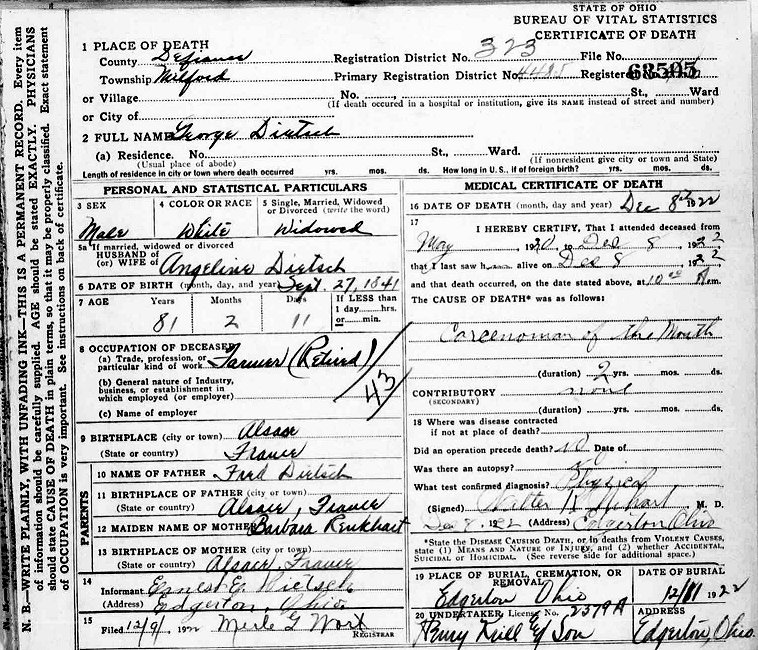 STATE OF OHIO
BUREAU OF VITAL STATISTICS
CERTIFICATE OF DEATH
1 PLACE OF DEATH
County Defiance Registration District No. 323 File No.
Township Milford Primary Registration District No. 4485 Registered No. 63505
or Village No. St., Ward
(If death occured in a hospital or institution, give its NAME instead of street and number)
or City of
2 FULL NAME George Dietsch
(a) Residence. No. St., Ward.
(Usual place of abode) (If nonresident give city or town and State)
Length of residence in city or town where death occurred yrs. mos. ds. How long in U.S., if of foreign birth? yrs. mos. ds.
PERSONAL AND STATISTICAL PARTICULARS
3 SEX 4 COLOR OR RACE 5 Single, Married, Widowed
or Divorced (write the word)
Male White Widowed
5a If married, widowed or divorced
HUSBAND of
(or) WIFE of Angeline Dietsch
6 DATE OF BIRTH (month, day, and year) Sept. 27, 1841
7 AGE Years Months Days If LESS than
1 day.....hrs.
or.....min.
81 2 11
8 OCCUPATION OF DECEASED
(a) Trade, profession, or
particular kind of work Farmer (Retired)
(b) General nature of Industry,
business, or establishment in
which employed (or employer)
43
(c) Name of employer
9 BIRTHPLACE (city or town) Alsace
(State or country) France
PARENTS
10 NAME OF FATHER Fred Dietsch
11 BIRTHPLACE OF FATHER (city or town)
(State or country) Alsace, France
12 MAIDEN NAME OF MOTHER Barbara Renkhart
13 BIRTHPLACE OF MOTHER (city or town)
(State or country) Alsace, France
14
Informant Ernest E Dietsch
(Address) Edgerton, Ohio
15
Filed 12/9/ 1922 Merle G Wort
REGISTRAR
MEDICAL CERTIFICATE OF DEATH
16 DATE OF DEATH (month, day and year) Dec 8th 1922
17
I HEREBY CERTIFY, That I attended deceased from
May, 1920, to Dec 8, 1922
that I last saw h alive on Dec 8, 1922
and that death occurred, on the date stated above, at 10 A m.
The CAUSE OF DEATH* was as follows:
Carcenoman of the Mouth
(duration) 2 yrs. mos. ds.
CONTRIBUTORY none
(SECONDARY)
(duration) yrs. mos. ds.
18 Where was disease contracted
if not at place of death?
Did an operation precede death? no Date of
Was there an autopsy? no
What test confirmed diagnosis? Physical
(Signed) M. D.
Dec 9, 1922 (Address) Edgerton Ohio
*State the DISEASE CAUSING DEATH, or in deaths from VIOLENT CAUSES,
state (1) MEANS AND NATURE OF INJURY, and (2) whether ACCIDENTAL,
SUICIDAL or HOMICIDAL. (See reverse side for additional space.)
19 PLACE OF BURIAL, CREMATION, OR REMOVAL DATE OF BURIAL
Edgerton Ohio 12/11 1922
20 UNDERTAKER, License No. 2579A ADDRESS
Krill & Son Edgerton, Ohio.
N. B.—WRITE PLAINLY, WITH UNFADING INK—THIS IS A PERMANENT RECORD. Every item
of information should be carefully supplied. AGE should be stated EXACTLY. PHYSICIANS
should state CAUSE OF DEATH in plain terms, so that it may be properly classified. Exact statement
of OCCUPATION is very important. See instructions on back of certificate.